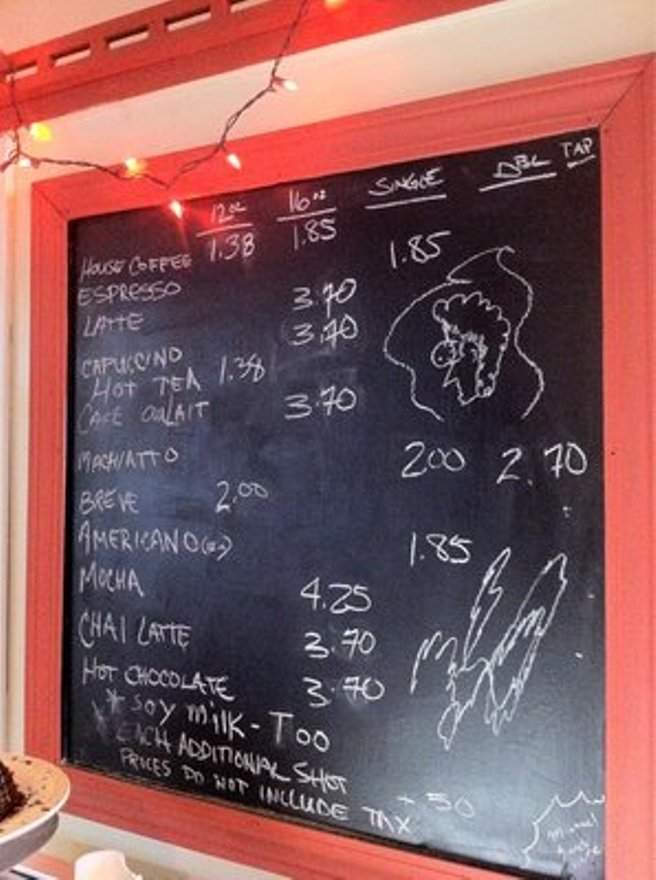 12oz 16oz SINGLE DBL TAP
HOUSE COFFEE 1.38 1.85
ESPRESSO 1.85
LATTE 3.70
CAPUCCINO 3.70
HOT TEA 1.38
CAFE AULAIT 3.70
MACHIATTO 200 2.70
BREVE 2.00
AMERICANO
1.85
MOCHA 4.25
CHAI LATTE 3.70
HOT CHOCOLATE 3.70
* SOY MILK - TOO
* EACH ADDITIONAL SHOT + 50
PRICES DO NOT INCLUDE TAX